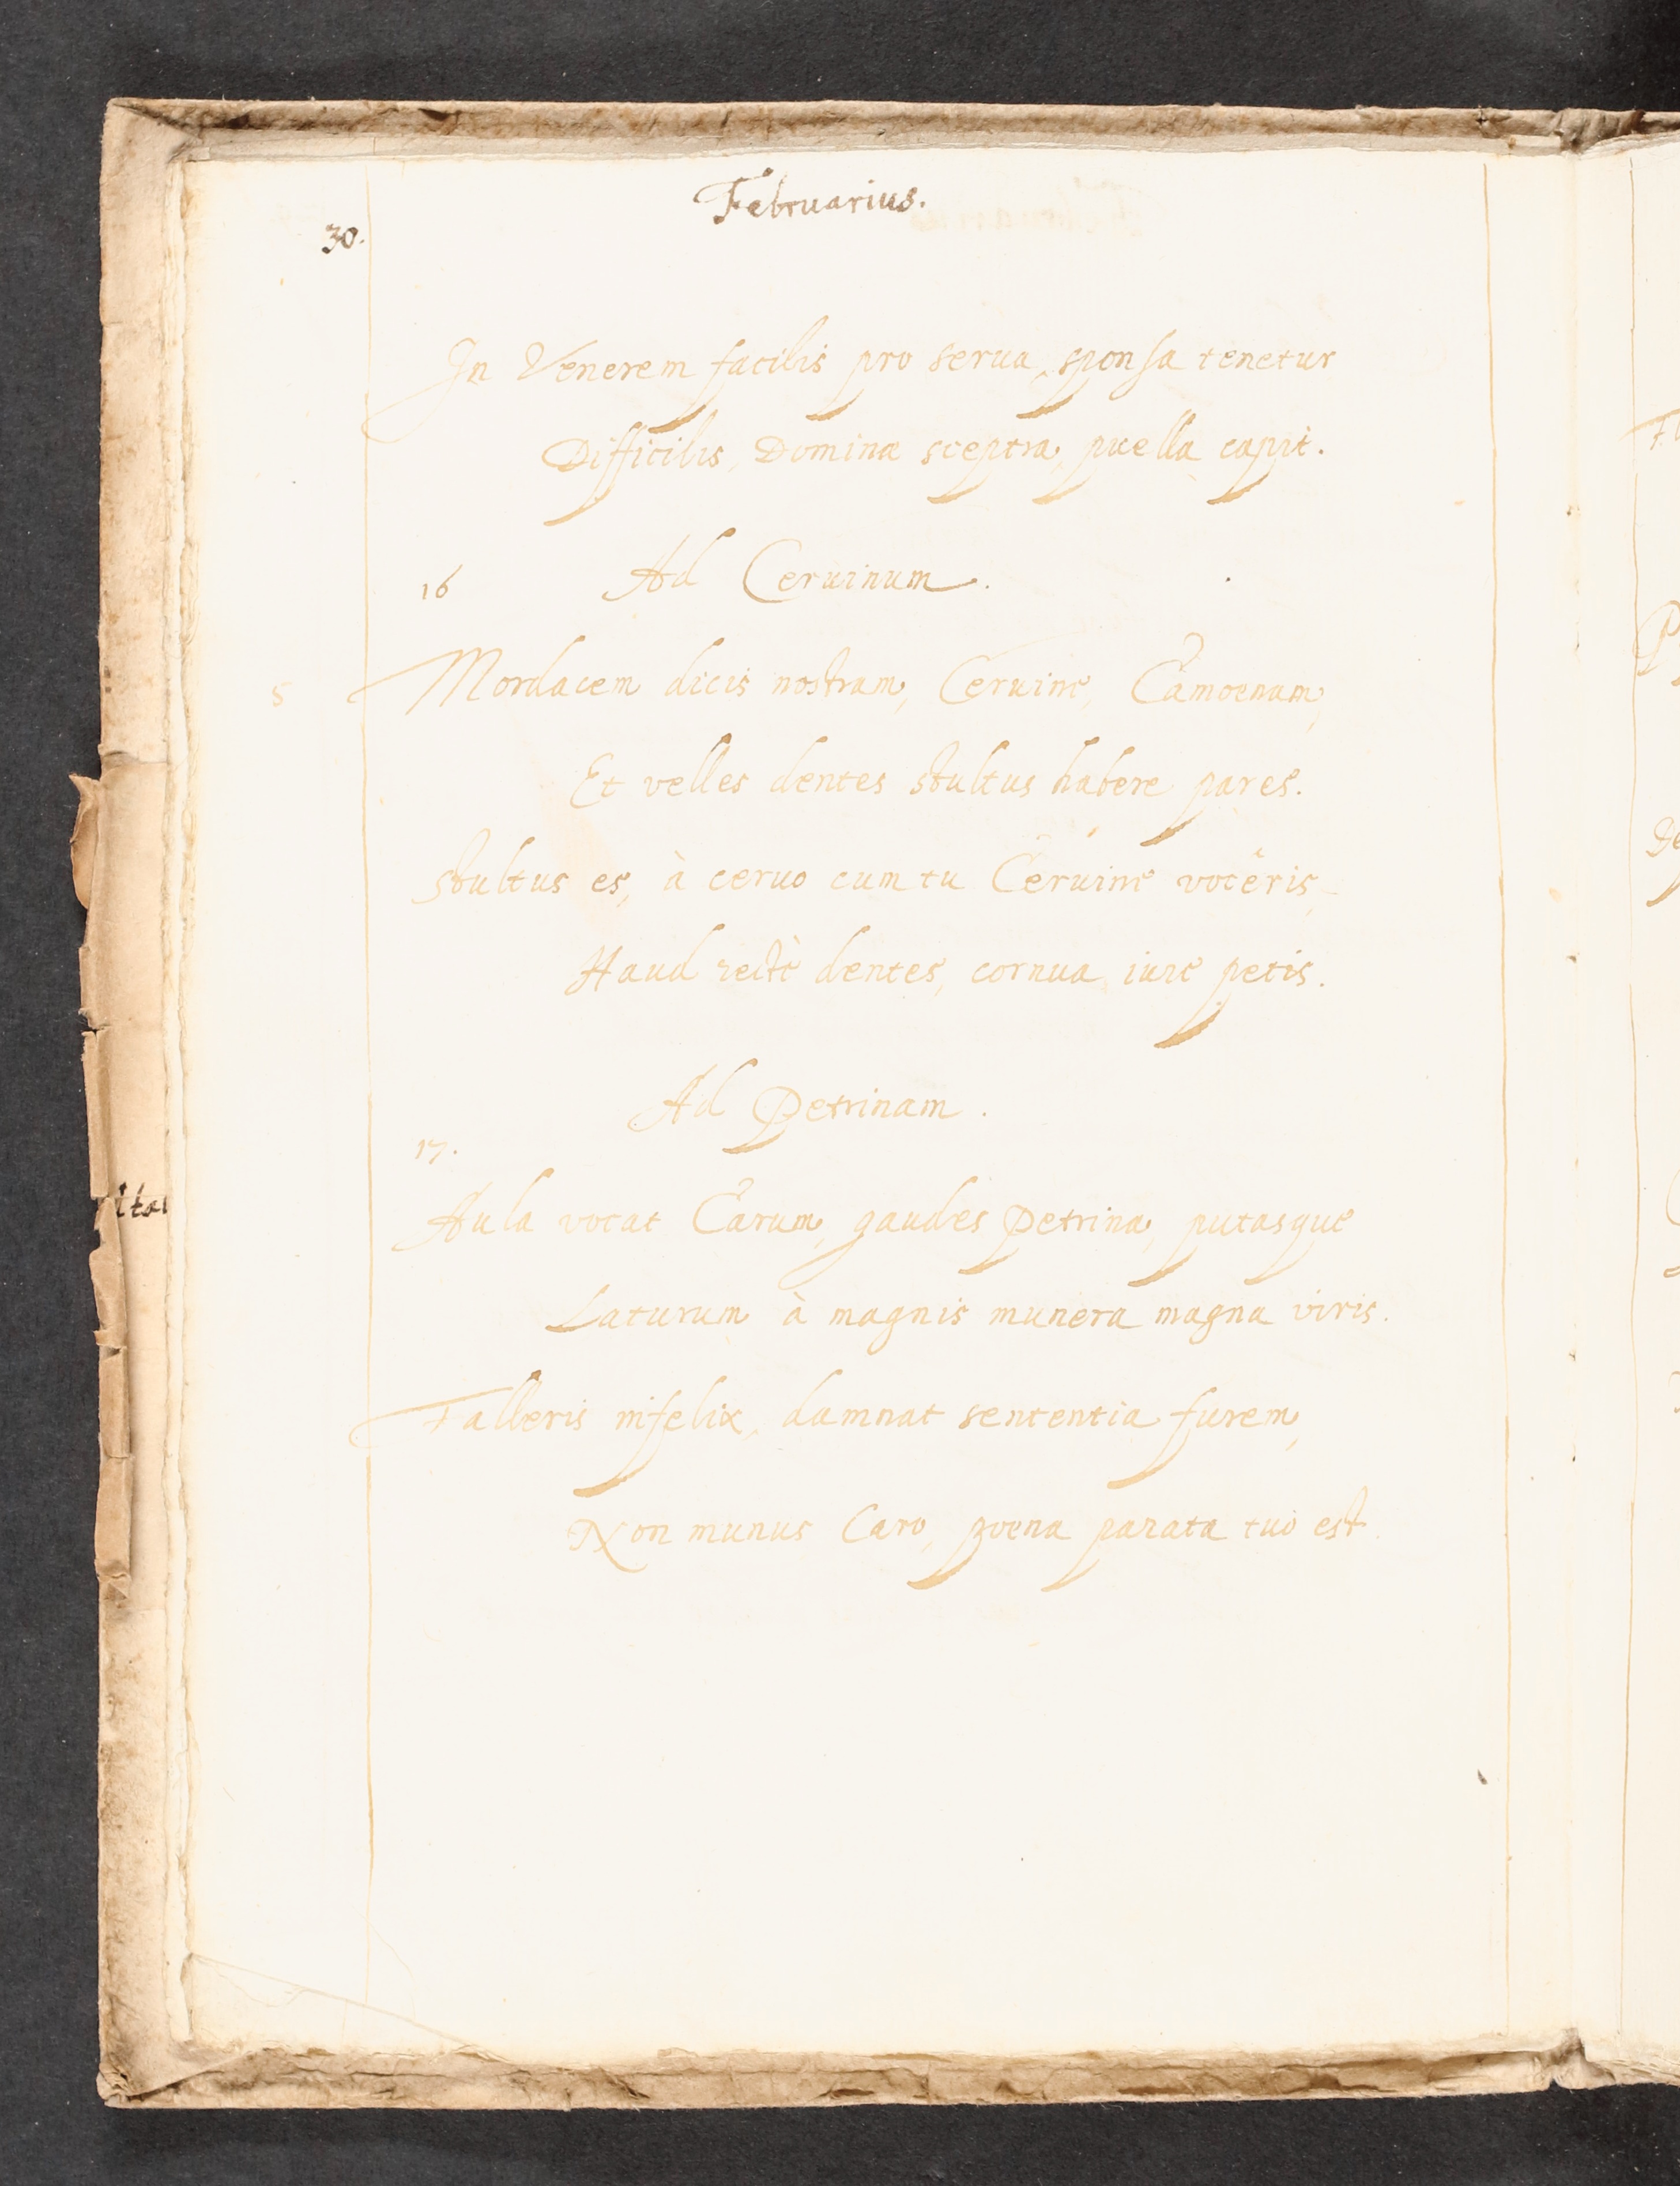 Februarius.
30.
In Venerem facilis pro serua, sponsa tenetur
Difficilis, Dominæ sceptra puella capit.
16 Ad Ceruinum.
5 Mordacem dicis nostram, Ceruine, Camoenam,
Et velles dentes stultus habere pares.
Stultus es, à ceruo cum tu Ceruine voceris,
Haud rectè dentes, cornua iure petis.
Ad Petrinam.
17.
Aula vocat Carum, gaudes Petrina, putasque
Laturum à magnis munera magna viris.
Falleris infelix, damnat sententia furem,
Non munus Caro, poena parata tuo est